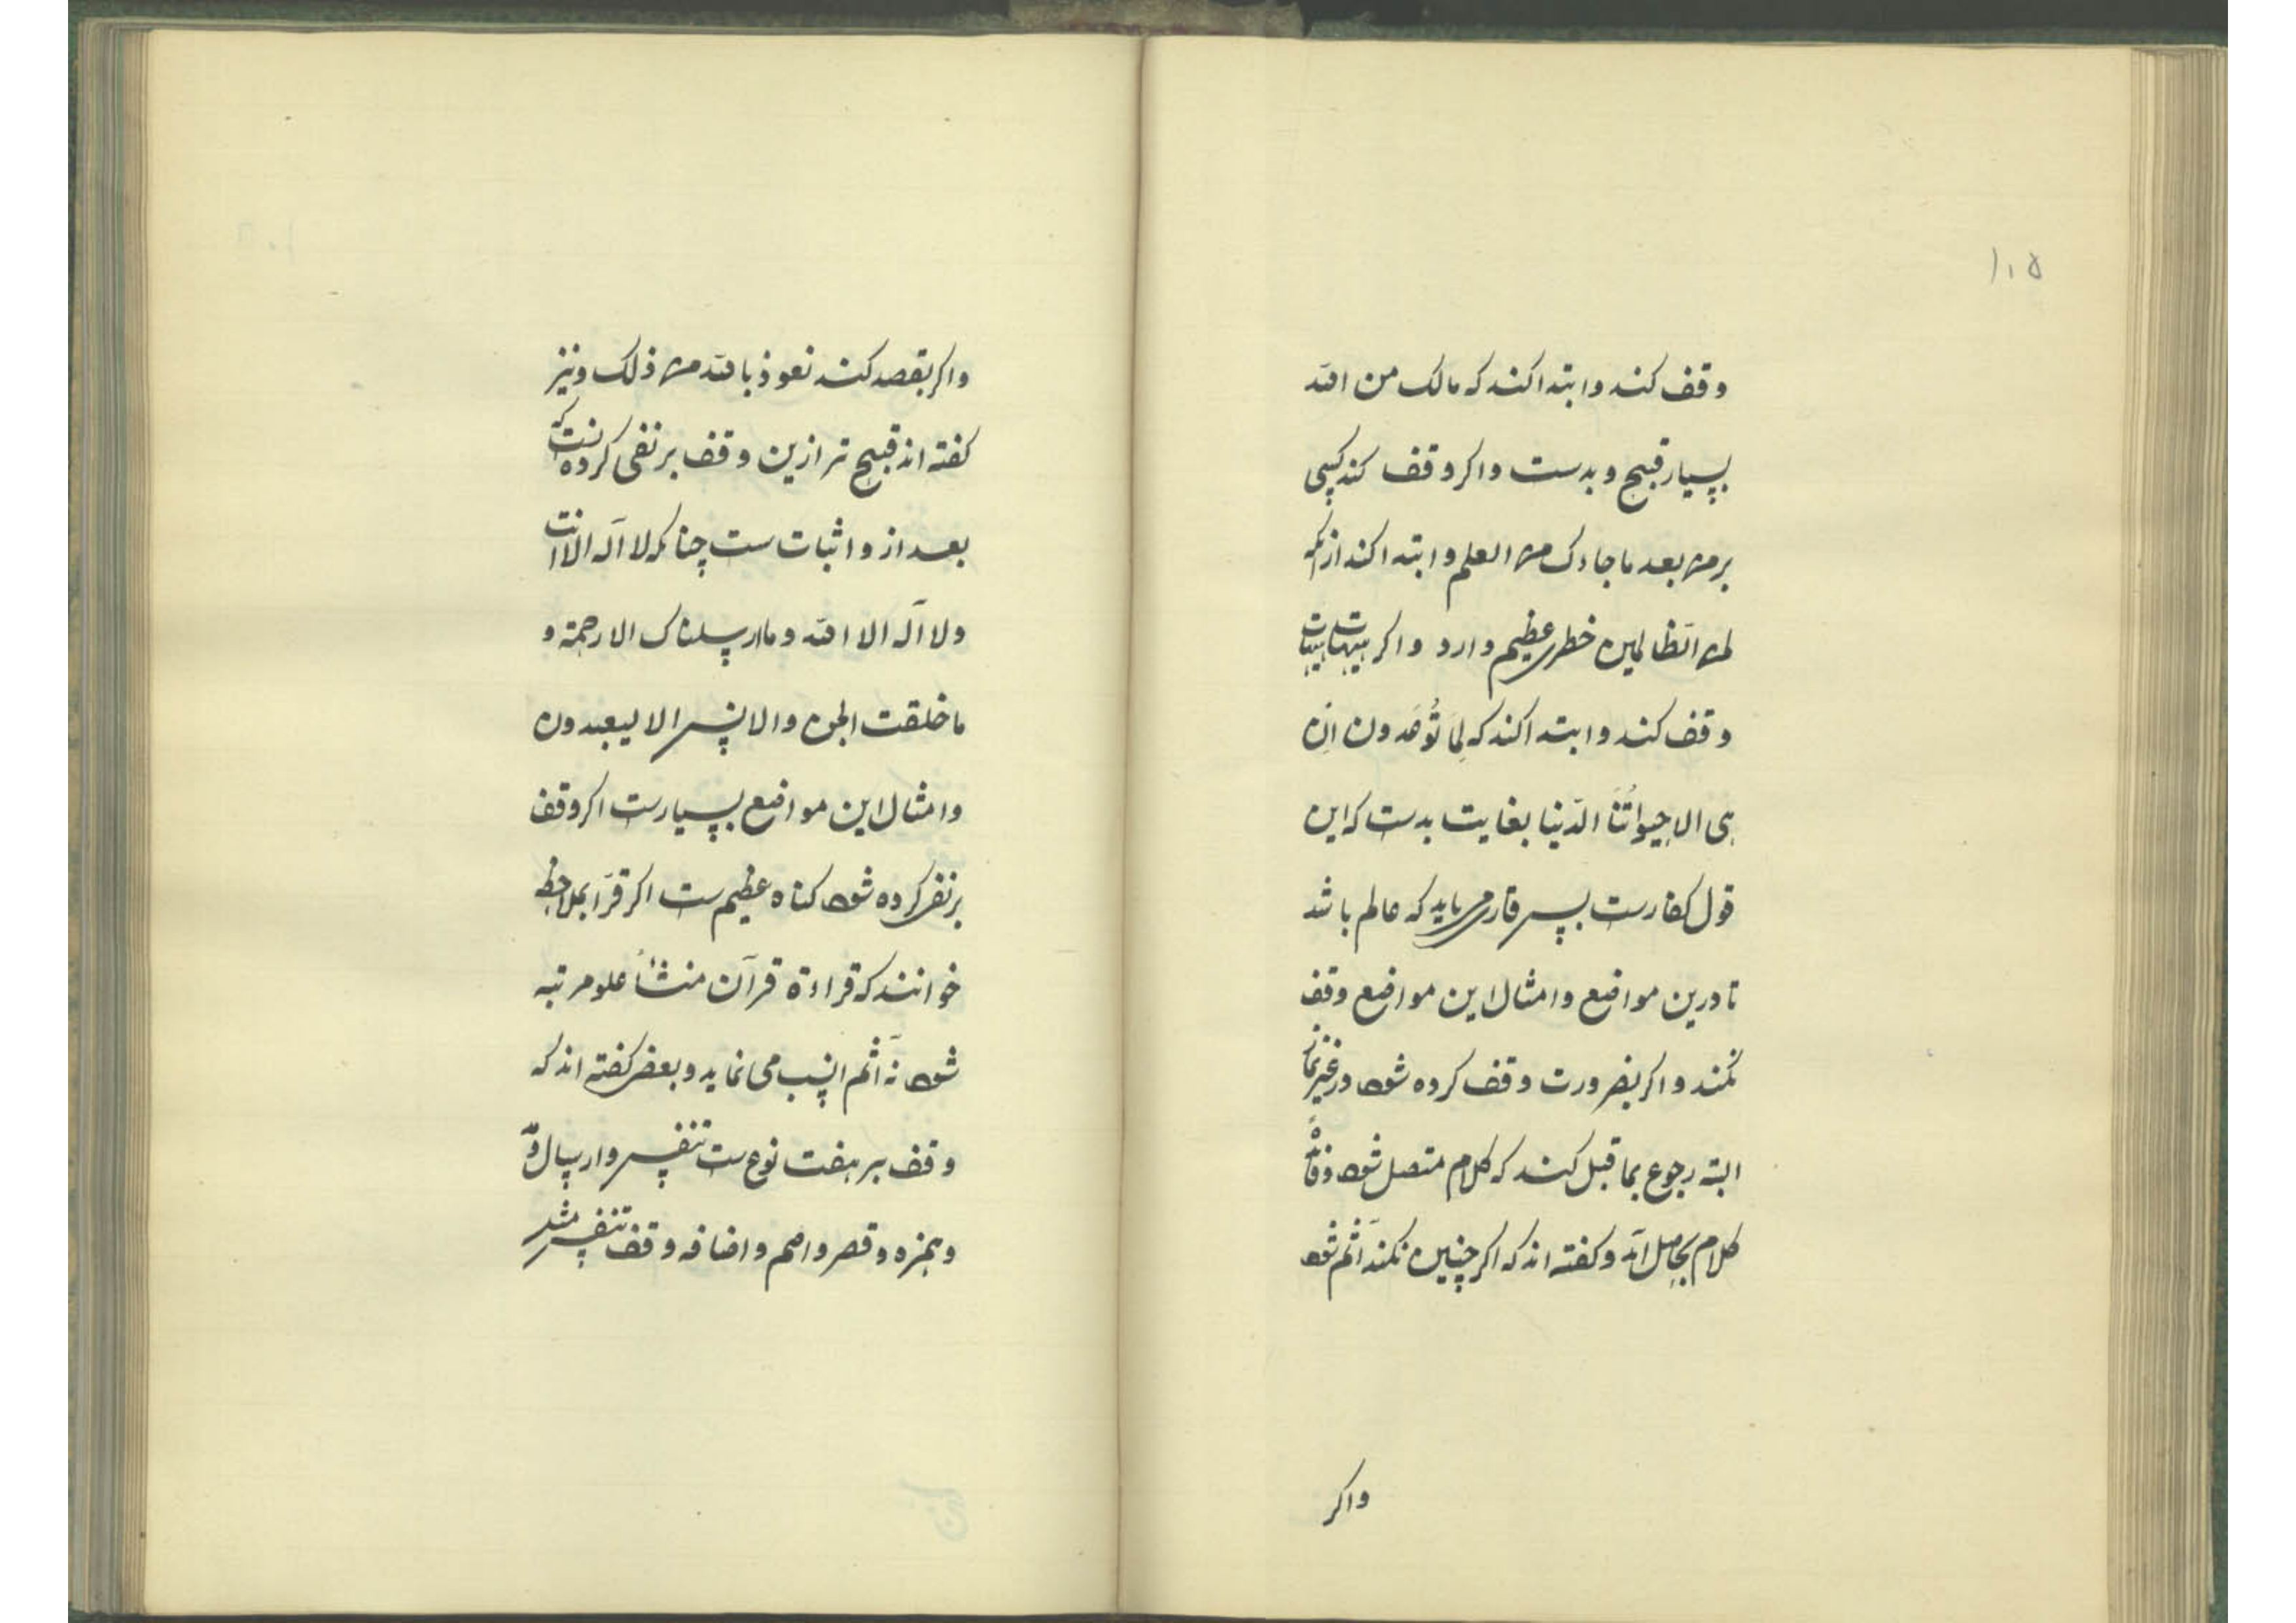 ۱۰۵
وقف کند وابتدا کند که مالک من الله
بسیار قبیح و بدست واکر وقف کند کسی
بر من بعد ما جاءک من العلم وابتدا کند از انک
لمن الظالمین خطری عظیم دارد واکر هیهات هیهات
وقف کند وابتدا کند که لِمَا تُوعَدون اِن
هی الا حیواتُنَا الدّنیا بغایت بدست که این
قول کفارست پس قاری می باید که عالم باشد
تا درین مواضع وامثال این مواضع وقف
نکند واکر بضرورت وقف کرده شود در غیر نماز
البته رجوع بما قبل کند که کلام متصل شود و فائدهٔ
کلام بحاصل آید و کفته اند که اکر چنین نکند آثم شود
واکر
واکر بقصد کند نعوذ بالله من ذلک ونیز
کفته اند قبیح تر ازین وقف بر نفی کردنست که
بعد از و اثبات ست چنانکه لا آله الا انت
ولا آله الا الله وما ارسلناک الا رحمة و
ما خلقت الجن والانس الا لیعبدون
وامثال این مواضع بسیارست اکر وقف
بر نفی کرده شود کناه عظیم ست اکر قرّا بملاحظه
خوانند که قراءة قرآن منشأ علو مرتبه
شود نه آثم انسب می نماید و بعضی کفته اند که
وقف بر هفت نوع ست تنفس وارسال و
وهمزه وقصر واصم واضافه وقف تنفس مثل